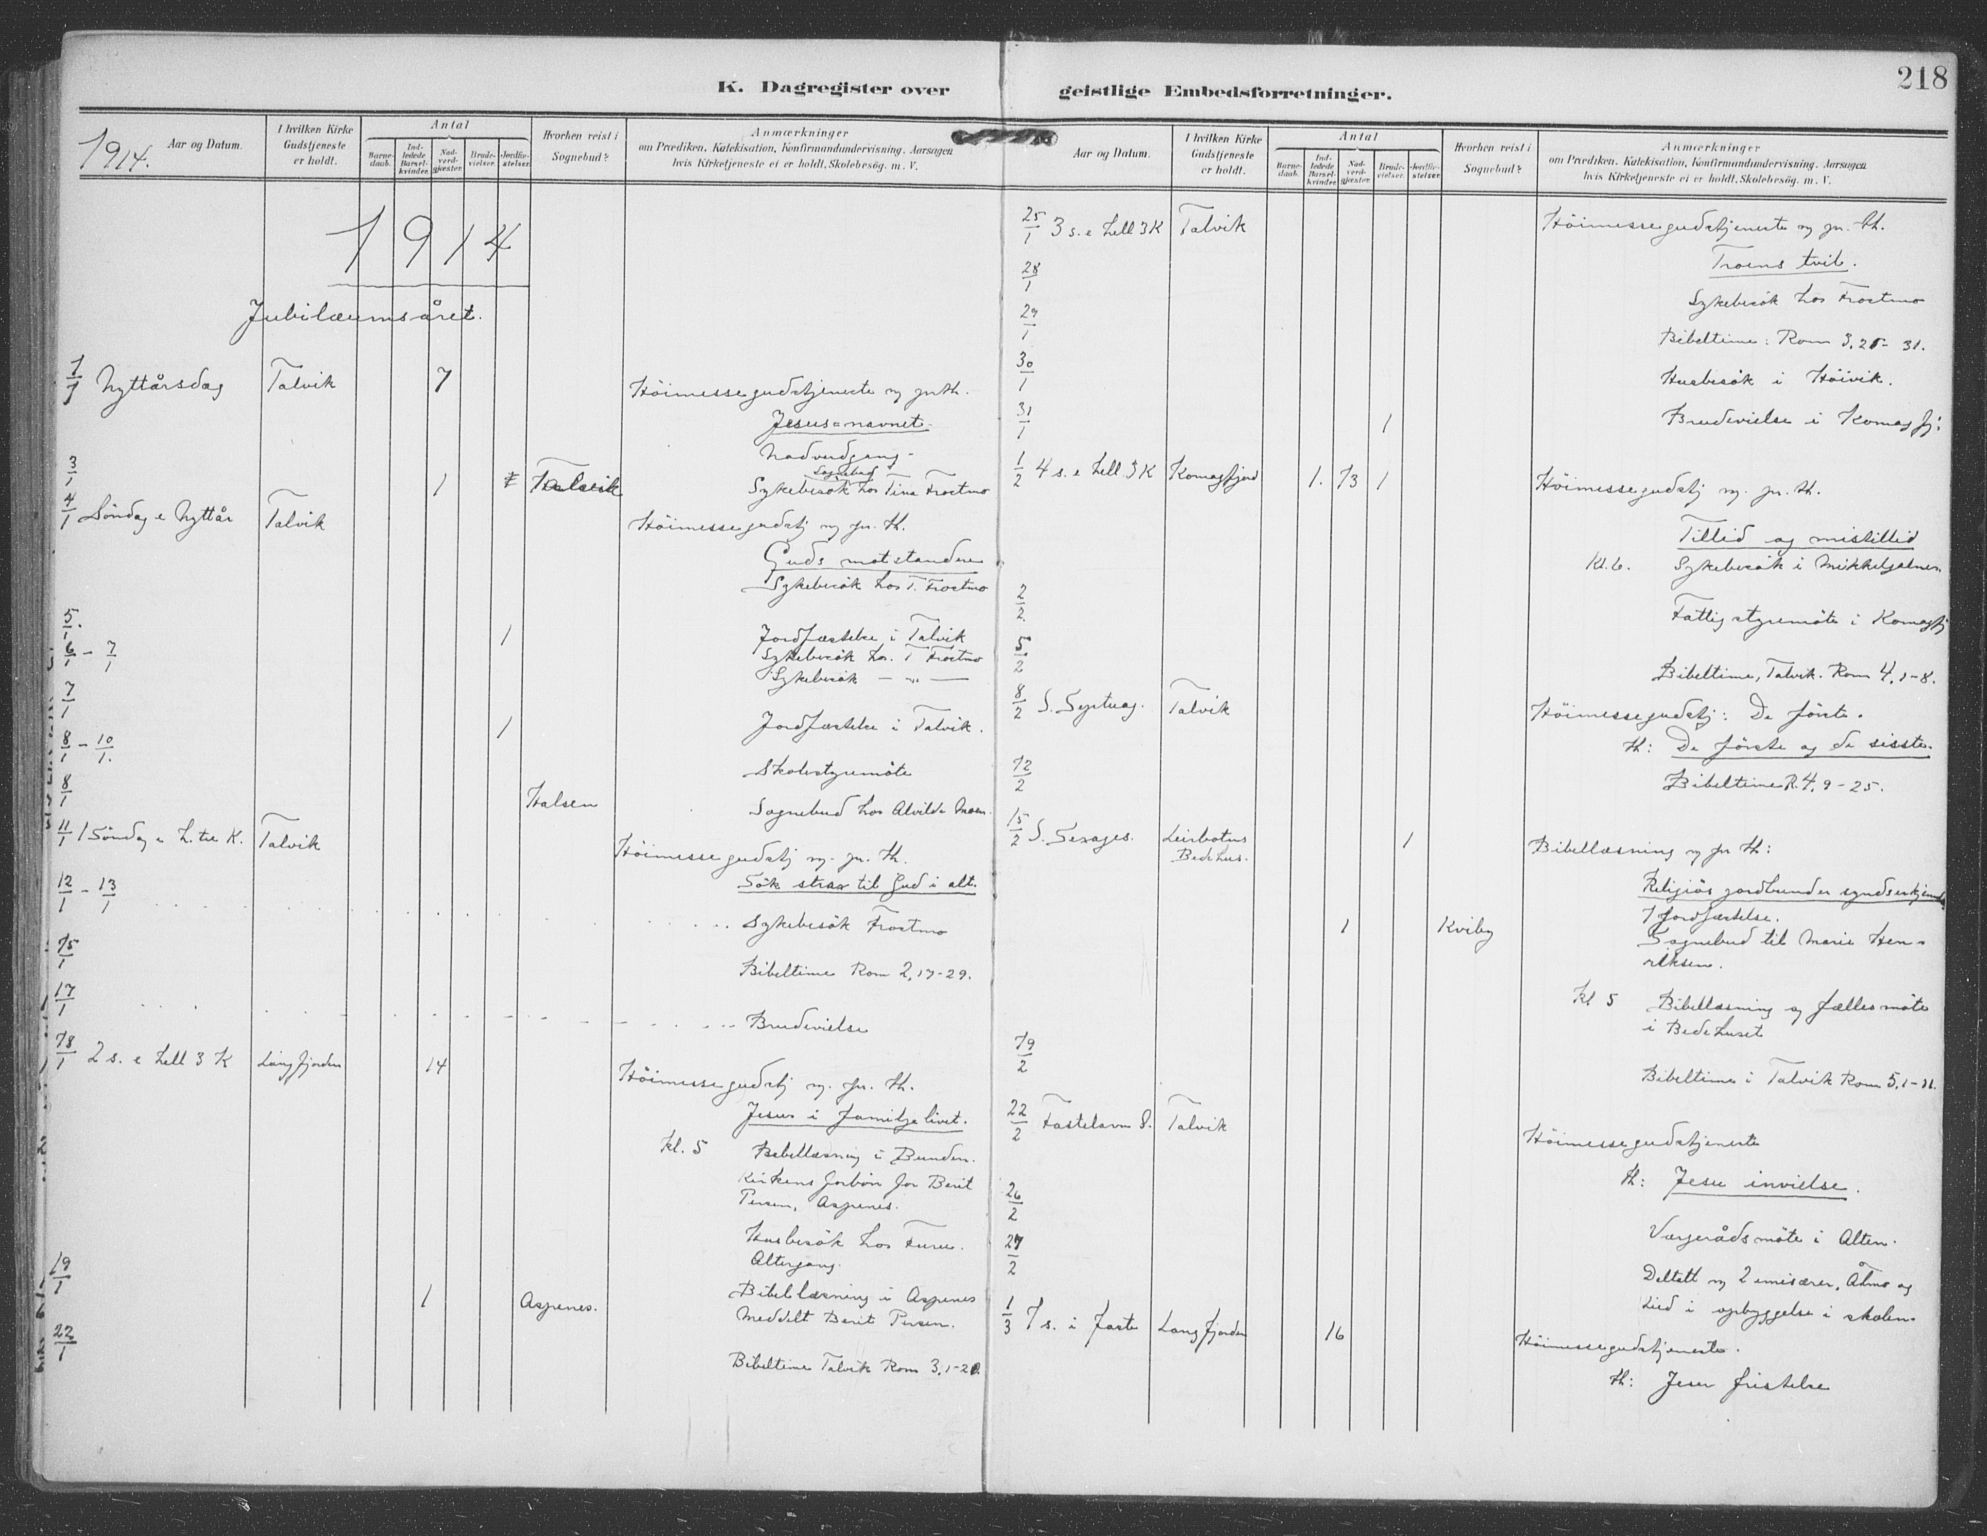 K. Dagregister over geistlige Embedsforretninger.
218
1914.
Aar og Datum. | I hvilken Kirke Gudstjeneste er holdt. | Antal | Barnedaab. | Indledede Barselkvinder. | Nadverdgjester. | Brudevielser. | Jordfæstelser. | Hvorhen reist i Sognebud? | Anmærkninger om Prædiken, Katekisation, Konfirmandundervisning, Aarsagen hvis Kirketjeneste ei er holdt, Skolebesög. m. V.
1914
Jubilæumsåret.
1/1 Nyttårsdag Talvik 7 Höimessegudstjeneste og pr. th.
Jesus-navnet.
Nadverdgang-
3/1 1 Talvik Sykebesök hos Tina Frostmo
Sognebud
4/1 Söndag e Nyttår Talvik Höimessegudstj og pr. th.
Guds motstandere
Sykebesök hos T. Frostmo
5/1 1 Jordfæstelse i Talvik
6/1 - 7/1 Sykebesök hos T Frostmo
Sykebesök — " —
7/1 1 Jordfæstelse i Talvik.
8/1 - 10/1 Skolestyremöte
8/1 Halsen Sognebud hos Alvilde Moen.
11/1 1 Söndag e H. tre K. Talvik Höimessegudstj og pr. th.
Sök strax til Gud i alt.
12/1 - 13/1 Sykebesök Frostmo
15/1 Bibeltime Rom 2,17-29.
17/1 Brudevielse
18/1 2 s. e hell 3 K Langfjorden 14 Höimessegudstj og pr. th.
Jesus i familjelivet.
kl. 5 Bibellæsning i Bunden.
Kirkens forbön for Berit
Persen, Aspenes.
Husbesök hos Furu.
Altergang.
19/1 1 Aspenes. Bibellæsning i Aspenes
Meddelt Berit Persen.
22/1 Bibeltime Talvik Rom 3,1-20.
Aar og Datum. | I hvilken Kirke Gudstjeneste er holdt. | Antal | Barnedaab. | Indledede Barselkvinder. | Nadverdgjester. | Brudevielser. | Jordfæstelser. | Hvorhen reist i Sognebud? | Anmærkninger om Prædiken, Katekisation, Konfirmandundervisning, Aarsagen hvis Kirketjeneste ei er holdt, Skolebesög. m. V.
25/1 3 s. e hell 3K Talvik Höimessegudstjeneste og pr. th.
Troens tvil.
28/1 Sykebesök hos Frostmo
29/1 Bibeltime: Rom 3,21-31.
30/1 Husbesök i Höivik.
31/1 1 Brudevielse i Komagfj:
1/2 4 s. e hell 3K Komagfjord 1. 13 1 Höimessegudstj og pr. th.
Tillid og mistillid
Kl. 6. Sykebesök i Mikkeljalnes.
2/2 Fattigstyremöte i Komagfj
5/2 Bibeltime, Talvik. Rom 4,1-8.
8/2 S. Septuag. Talvik Höimessegudstj: De förste.
th: De förste og de sisste.
12/2 Bibeltime R. 4,9-25.
15/2 S. Sexages. Leirbotns Bedehus. 1 Bibellæsning og pr th:
Religiös jordbunder syndserkjend
1 Jordfæstelse.
1 Kviby Sognebud til Marie Hen-
riksen.
kl 5 Bibellæsning og fællesmöte
i Bedehuset
19/2 Bibeltime i Talvik Rom 5,1-11.
22/2 Fastelavns S. Talvik Höimessegudstjeneste
th: Jesu invielse.
26/2 Vergerådsmöte i Alten.
27/2 Deltatt og 2 emisærer, Åhmo og
Lied i opbyggelse i skolen.
1/3 1 s. i faste Langfjorden 16 Höimessegudstjeneste.
th: Jesu fristelse